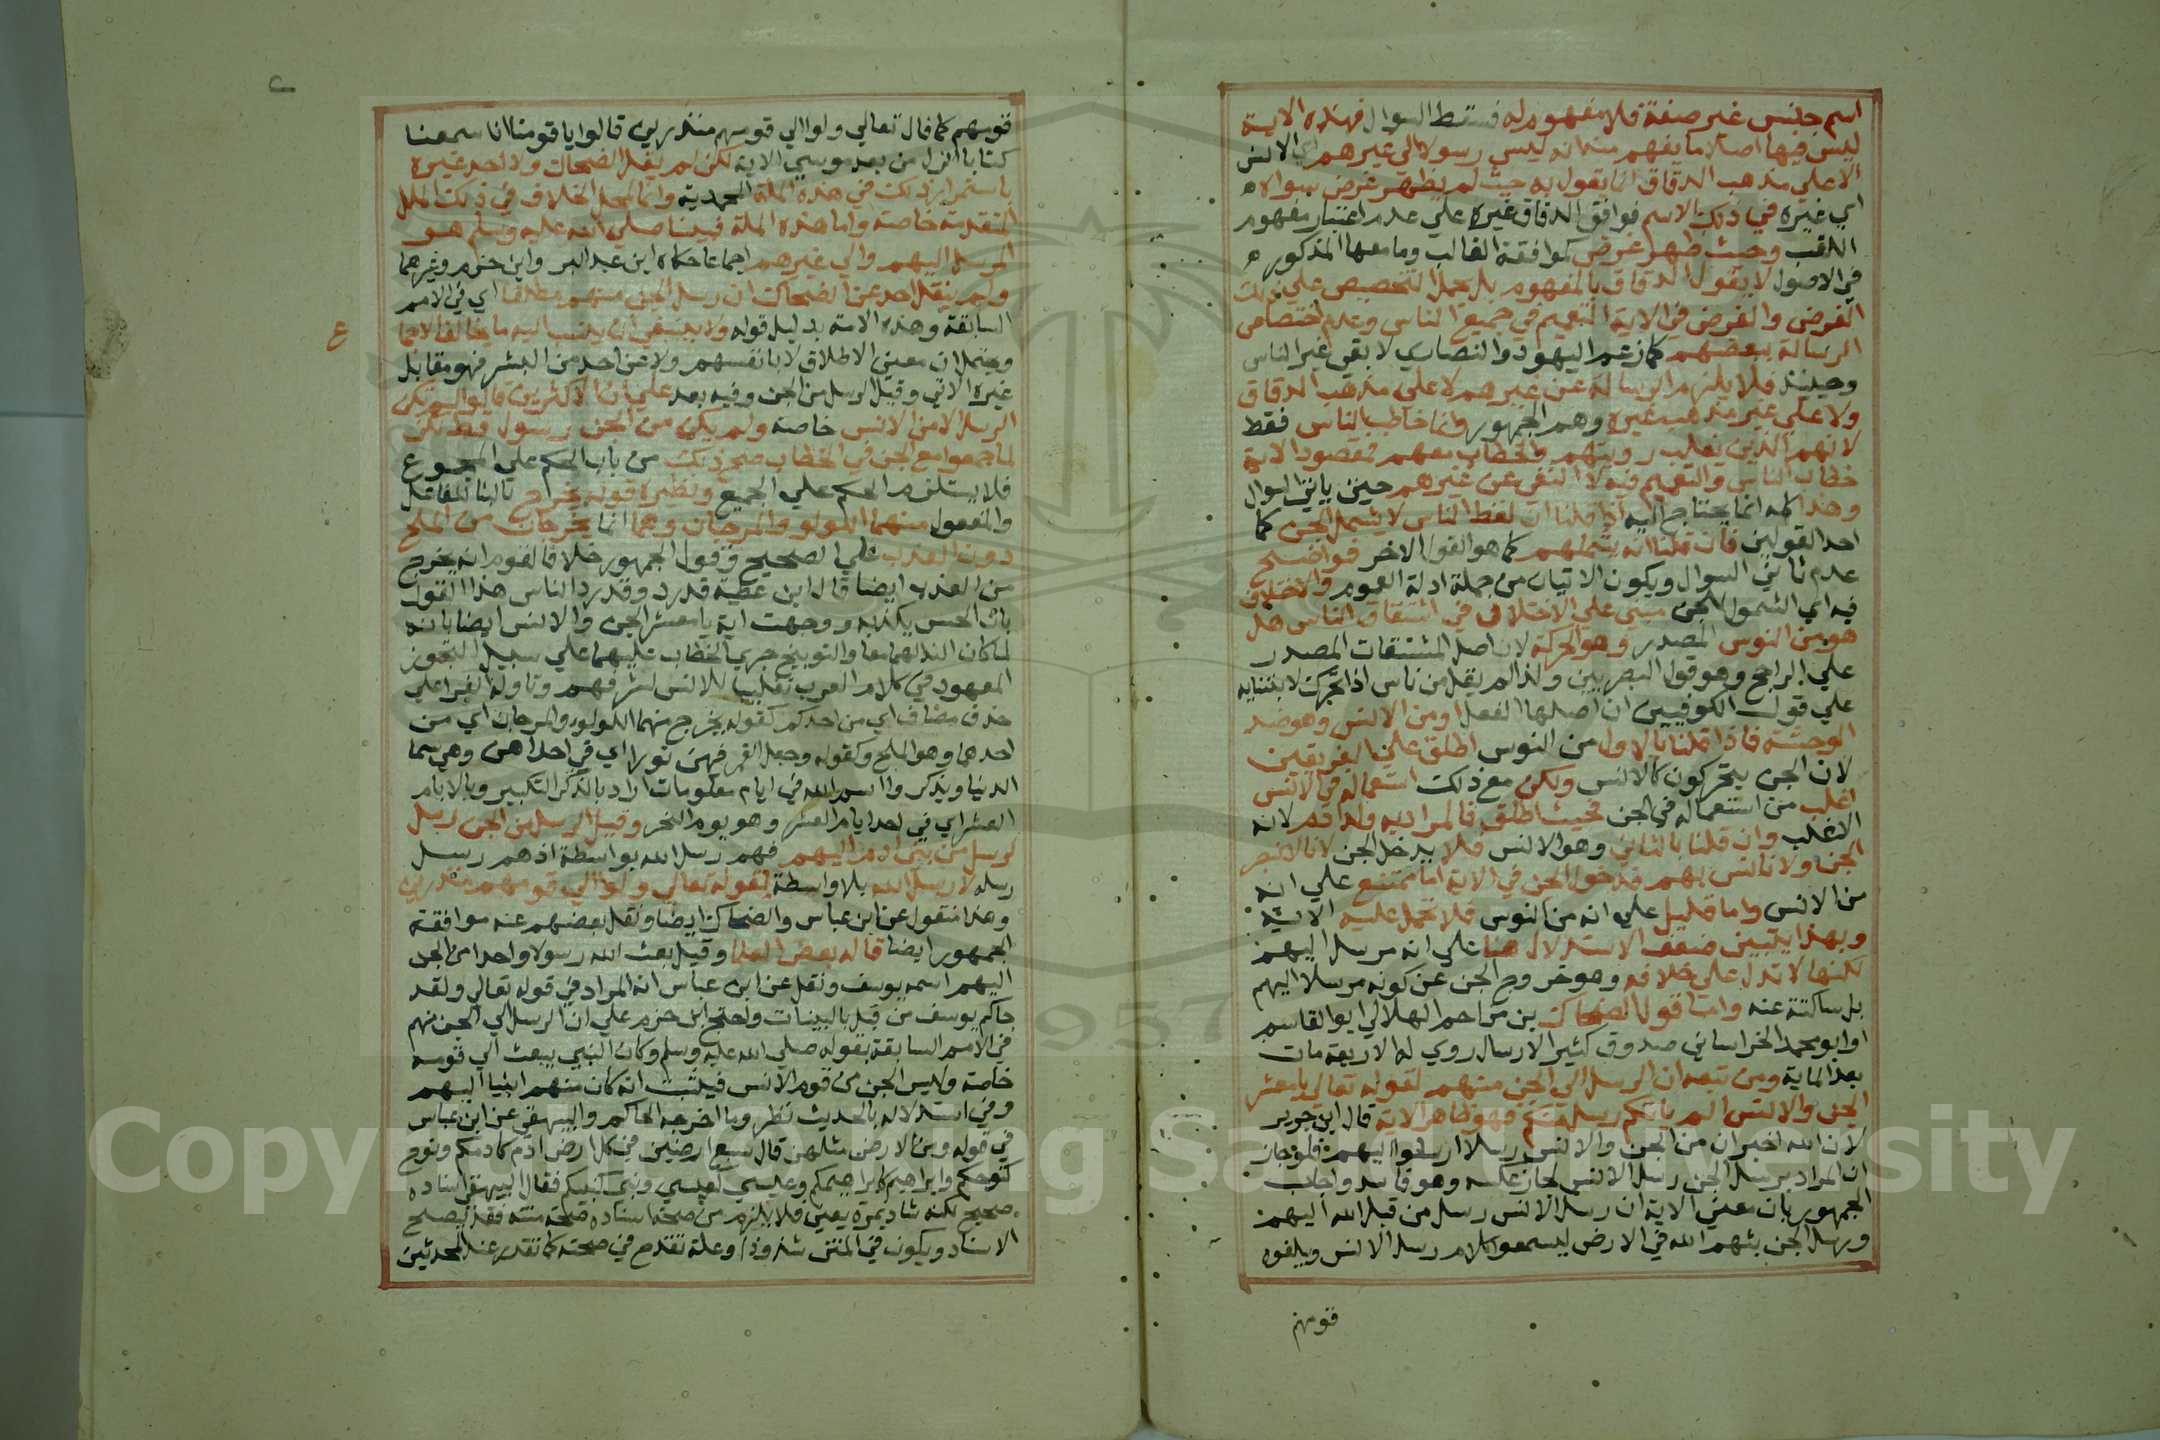 اسم جنس غير صفة فلا مفهوم له فسقط السوال فهذه الاية
ليس فيها اصلا ما يفهم منه انه ليس رسولا الي غيرهم اي الانس
الا علي مذهب الدقاق انما يقول به حيث لم يظهر غرض سواه
اي غيره في ذلك الاسم فوافق الدقاق غيره علي عدم اعتبار مفهوم
اللقب وحيث ظهر غرض كموافقة الغالب وما معها المذكوره
في الاصول لا يقول الدقاق بالمفهوم بل يحمل التخصيص علي ذلك
الغرض والغرض في الاية التعميم في جميع الناس وعدم اختصاص
الرسالة ببعضهم كما زعم اليهود والنصاري لا بقي غير الناس
وحينئذ فلا يلزم الرسالة عن غيرهم لا علي مذهب الدقاق
ولا علي غير مذهب غيره وهم الجمهور وانما خاطب الناس فقط
لانهم الذين يغلب رويتهم والخطاب معهم فمقصود الاية
خطاب الناس والتعميم فيه لا النفي عن غيرهم حيني ياتي السوال
وهذا كله انما يحتاج اليه اذا قلنا ان لفظ الناس لا يشمل الجن كما
احد القولين فان قلنا انه يشملهم كما هو القول الاخر فواضح
عدم تاتي السوال ويكون الاتيان من جملة ادلة العموم والاختلاف
فيه اي الشمول للجن مبني علي الاختلاف في اشتقاق الناس هل
هو من النوس المصدر وهو الحركة لان اصل المشتقات المصدر
علي الراجح وهو قول البصريين ولذا لم يقل من ناس اذا تحرك لابتنايه
علي قول الكوفيين ان اصلها الفعل او من الانس وهو ضد
الوحشة فاذا قلنا بالاول من النوس اطلق علي الفريقين
لان الجن يتحركون كالانس ولكن مع ذلك استعماله في الانس
اغلب من استعماله في الجن فحيث اطلق فالمراد به ولد ادم لانه
الاغلب وان قلنا بالثاني وهو الانس فلا يدخل الجن لانا لا نبصر
الجن ولا نانس بهم فدخول الجن في الاية اما ممتنع علي انه
من الانس واما قليل علي انه من النوس فلا تحمل عليه الاية
وبهذا يتبين ضعف الاستدلال هنا علي انه مرسل اليهم
لكنها لا تدل علي خلافه وهو خروج الجن عن كونه مرسلا اليهم
بل ساكتة عنه واما قول الضحاك بن مزاحم الهلالي ابو القاسم
او ابو محمد الخراساني صدوق كثير الارسال روي له الاربعة مات
بعد الماية ومن تبعه ان الرسل الي الجن منهم لقوله تعالي يا معشر
الجن والانس الم ياتكم رسل منكم فهو ظاهر الاية قال ابن جرير
لان الله اخبر ان من الجن والانس رسلا ارسلوا اليهم فلو جاز
ان المراد برسل الجن رسل الانس لجاز عكسه وهو فاسد واجاب
الجمهور بان معني الاية ان رسل الانس رسل من قبل الله اليهم
ورسل الجن بثهم الله في الارض ليسمعوا كلام رسل الانس ويبلغوه
قومهم
قومهم كما قال تعالي ولوا الي قومهم منذرين قالوا يا قومنا انا سمعنا
كتابا انزل من بعد موسي الاية لكن لم ينقل الضحاك ولا احد غيره
باستمرار ذلك في هذه الملة المحمدية وانما محل الخلاف في ذلك الملل
المتقدمة خاصة واما هذه الملة فنبينا صلي الله عليه وسلم هو
المرسل اليهم والي غيرهم اجماعا حكاه ابن عبد البر وابن حزم وغيرهما
ولم ينقل احد عن الضحاك ان رسل الجن منهم مطلقا اي في الامم
السابقة وهذه الامة بدليل قوله ولا ينبغي ان ينسب اليه ما يخالف الاجما
ع
ويحتمل ان معني الاطلاق لا بانفسهم ولا عن احد من البشر فهو مقابل
غيره الاتي وقيل الرسل من الجن وفيه بعد علي ان الاكثرين قالوا لم تكن
الرسل الا من الانس خاصة ولم يكن من الجن رسول قط لكن
لما جمعوا مع الجن في الخطاب صح ذلك من باب الحكم علي المجموع
فلا يستلزم الحكم علي الجميع ونظيره قوله يخرج بالبنا للفاعل
والمفعول منهما اللولو والمرجان وهما انما يخرجان من الملح
دون العذب علي الصحيح وقول الجمهور خلافا لقوم انه يخرج
من العذب ايضا قال ابن عطية قد رد وقد رد الناس هذا القول
بان الحس يكذبه ووجهت اية يا معشر الجن والانس ايضا بانه
لما كان الندا لهما معا والتوبيخ جري الخطاب عليهما علي سبيل التجوز
المعهود في كلام العرب تغليبا للانس لشرفهم وتاوله الفرا علي
حذف مضاف اي من احدكم كقوله يخرج منهما اللولو والمرجان اي من
احدهما وهو الملح وكقوله وجعل القمر فيهن نورا اي في احداهن وهي سما
الدنيا ويذكروا اسم الله في ايام معلومات اراد بالذكر التكبير وبالايام
العشر اي في احد ايام العشر وهو يوم النحر وقيل الرسل من الجن رسل
لرسل من بني ادم اليهم فهم رسل الله بواسطة اذ هم رسل
رسله لا رسل الله بلا واسطة لقوله تعالي ولوا الي قومهم منذرين
وهذا منقول عن ابن عباس والضحاك ايضا ونقل بعضهم عنه موافقة
الجمهور ايضا قاله بعض العلما وقيل بعث الله رسولا واحدا من الجن
اليهم اسمه يوسف ونقل عن ابن عباس انه المراد في قوله تعالي ولقد
جاكم يوسف من قبل بالبينات واحتج ابن حزم علي ان الرسل الي الجن منهم
في الامم السابقة بقوله صلي الله عليه وسلم وكان النبي يبعث الي قومه
خاصة وليس الجن من قوم الانس فيثبت انه كان منهم انبيا اليهم
وفي استدلاله بالحديث نظر وما اخرجه الحاكم والبيهقي عن ابن عباس
في قوله ومن الارض مثلهن قال سبع ارضين في كل ارض ادم كادمكم ونوح
كنوحكم وابراهيم كابراهيمكم وعيسي كعيسي ونبي كنبيكم فقال البيهقي اسناده
صحيح لكنه شاذ بمرة يعني فلا يلزم من صحة اسناده صحة متنه فقد يصح
الاسناد ويكون في المتن شذوذا وعلة تقدح في صحته كما تقدم عند المحدثين
Copyright © King Saud University
1957